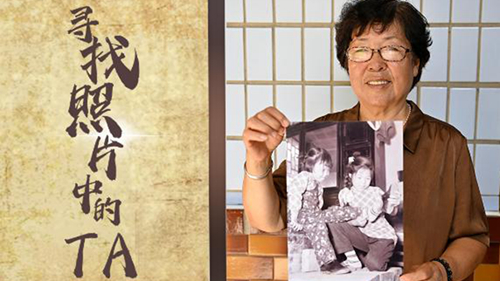 寻找照片中的TA